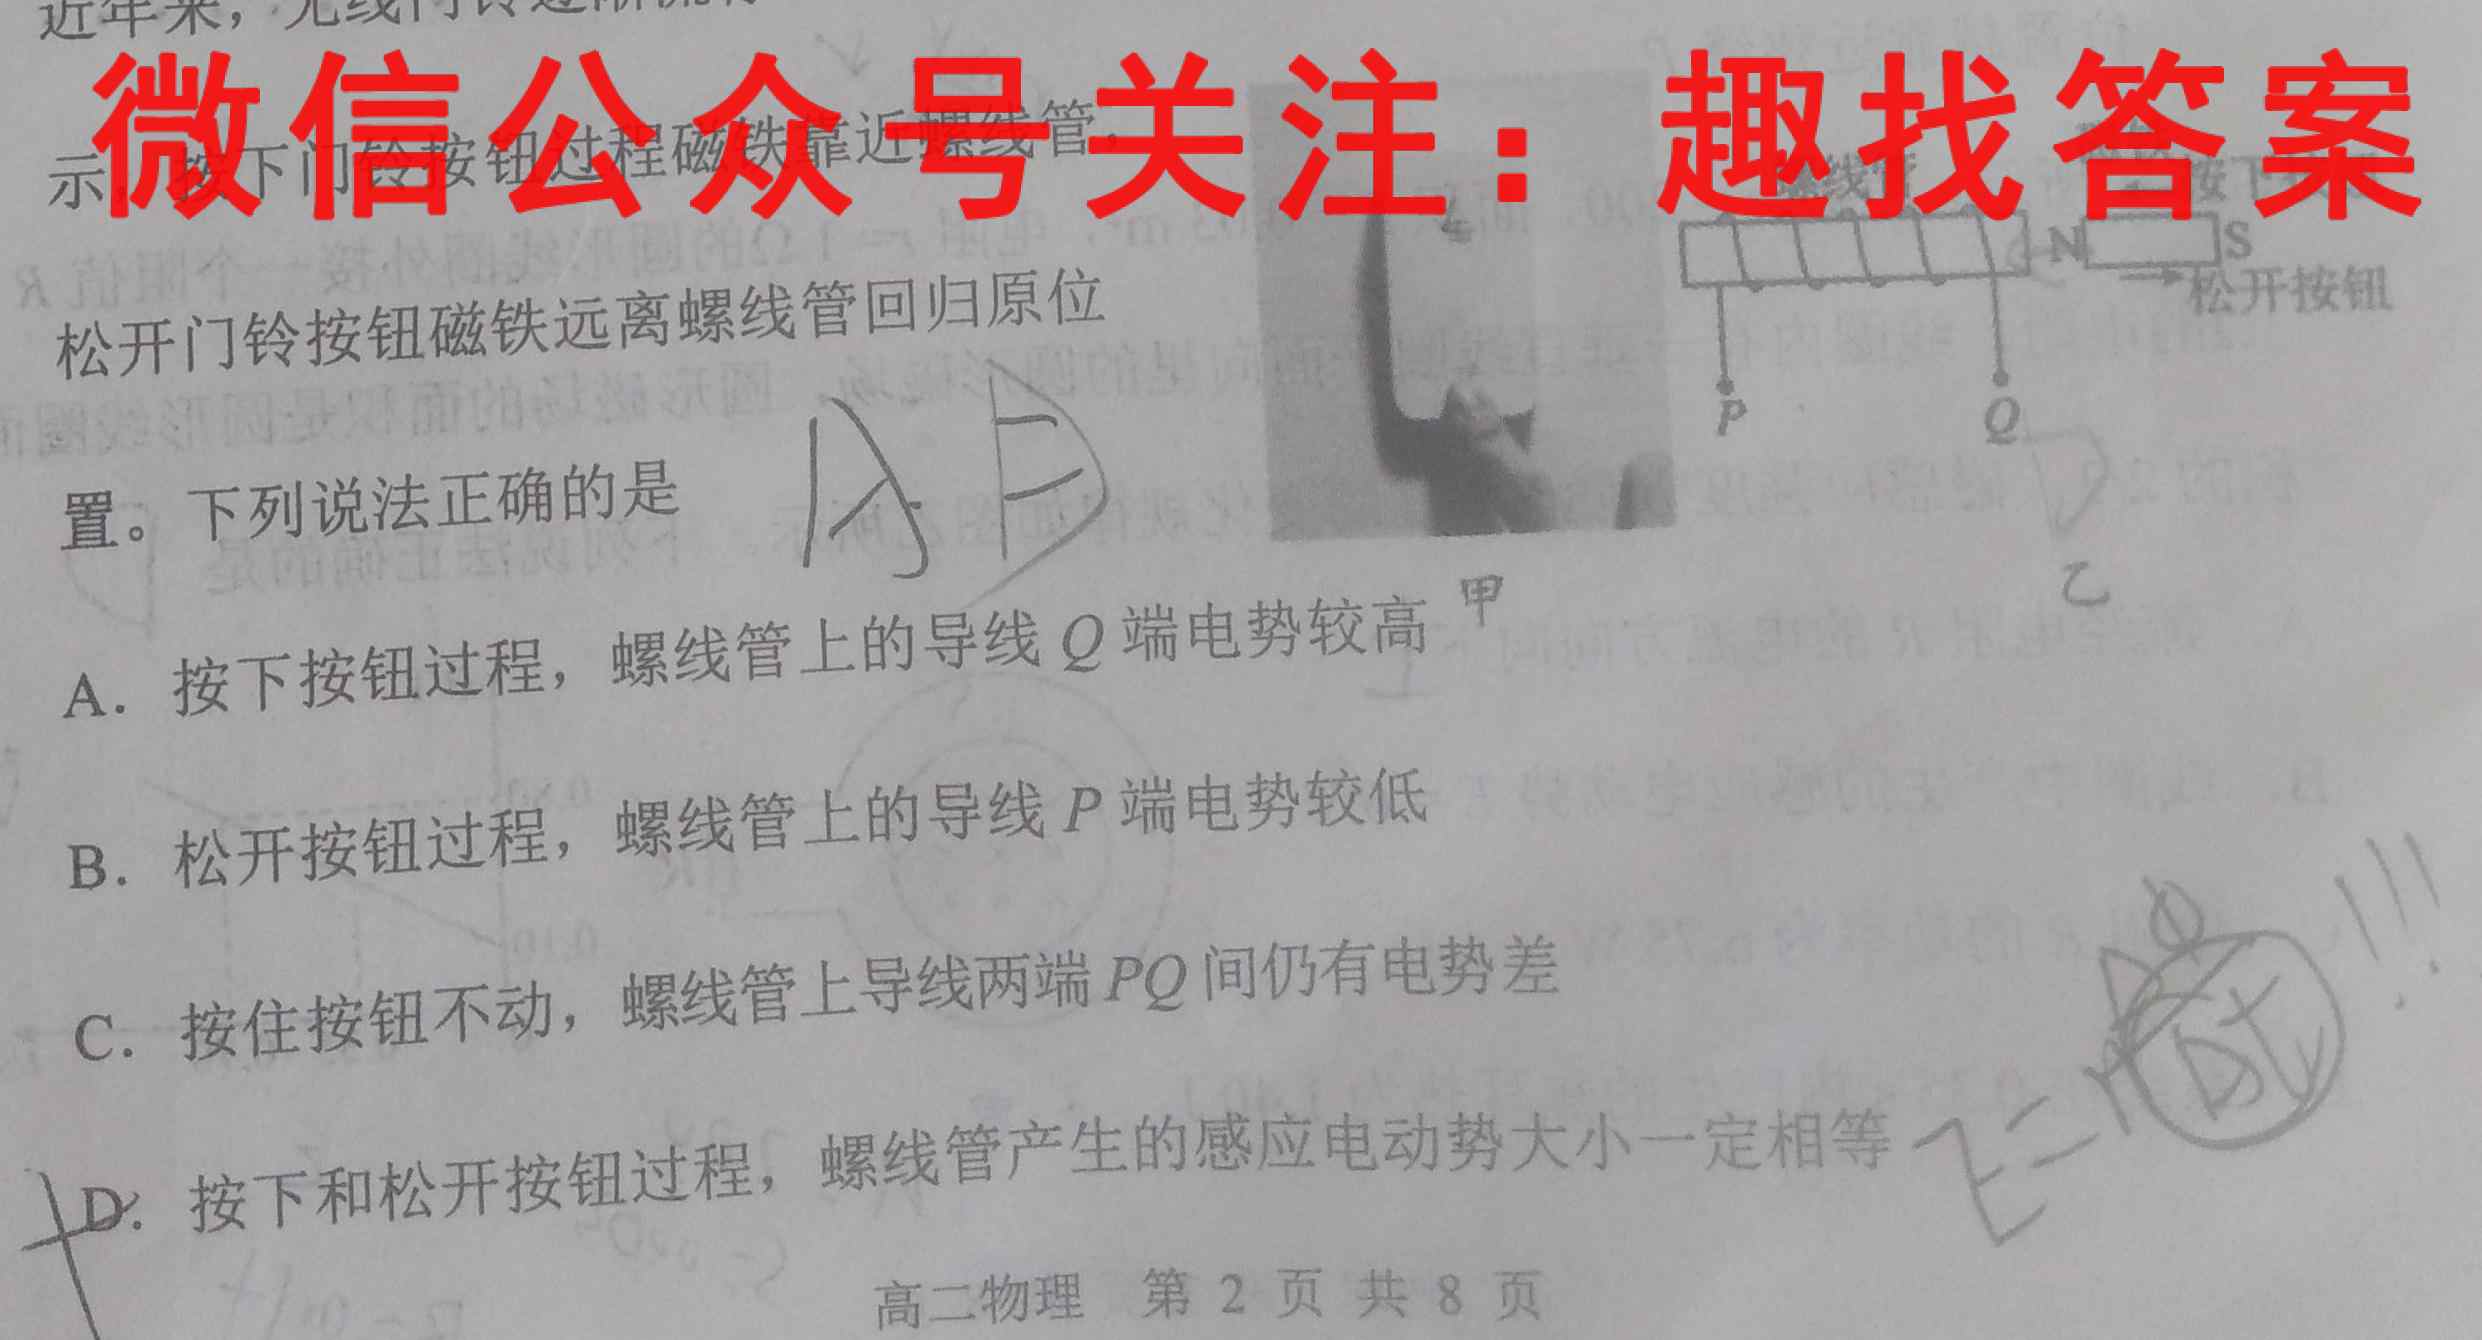 微信公众号关注：趣找答案
示，按下门铃按钮过程磁铁靠近螺线管，
螺线管
N
S
松开按钮
松开门铃按钮磁铁远离螺线管回归原位
P
Q
置。下列说法正确的是
甲
乙
A. 按下按钮过程，螺线管上的导线 Q 端电势较高
B. 松开按钮过程，螺线管上的导线 P 端电势较低
C. 按住按钮不动，螺线管上导线两端 PQ 间仍有电势差
D. 按下和松开按钮过程，螺线管产生的感应电动势大小一定相等
高二物理 第 2 页 共 8 页